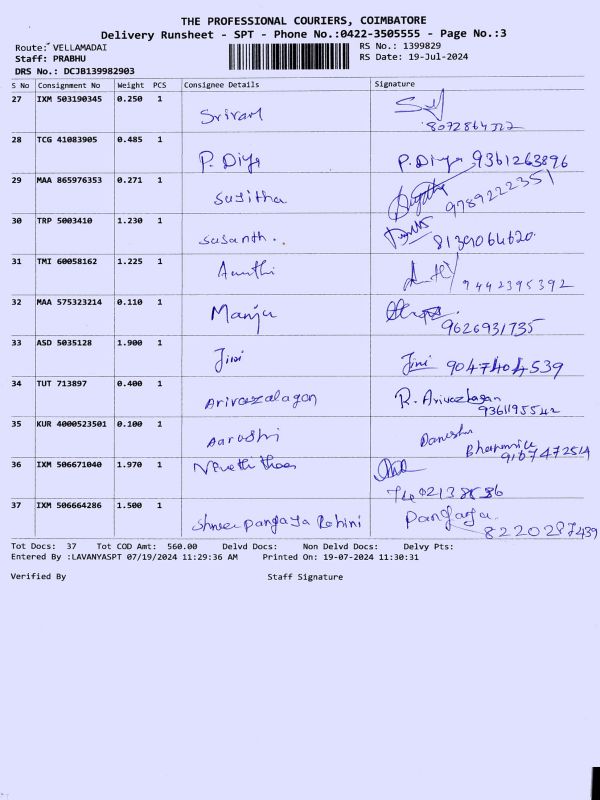 THE PROFESSIONAL COURIERS, COIMBATORE
Delivery Runsheet - SPT - Phone No.:0422-3505555 - Page No.:3
Route: VELLAMADAI RS No.: 1399829
Staff: PRABHU RS Date: 19-Jul-2024
DRS No.: DCJB139982903
S No Consignment No Weight PCS Consignee Details Signature
27 IXM 503190345 0.250 1
Sriram
8072864322
28 TCG 41083905 0.485 1
P. Diya P. Diya 9361263896
29 MAA 865976353 0.271 1
Sujitha 9789222351
30 TRP 5003410 1.230 1
Susanth. 8139064620.
31 TMI 60058162 1.225 1
9442395392
32 MAA 575323214 0.110 1
Manju
9626931735
33 ASD 5035128 1.900 1
Jini Jini 9047404539
34 TUT 713897 0.400 1
Arivazalagan R. Arivazlagan
9361195542
35 KUR 4000523501 0.100 1
Aarushi
9167472514
36 IXM 506671040 1.970 1
37 IXM 506664286 1.500 1
Shree pangaya Rohini Pangaya
8220287439
Tot Docs: 37 Tot COD Amt: 560.00 Delvd Docs: Non Delvd Docs: Delvy Pts:
Entered By :LAVANYASPT 07/19/2024 11:29:36 AM Printed On: 19-07-2024 11:30:31
Verified By Staff Signature